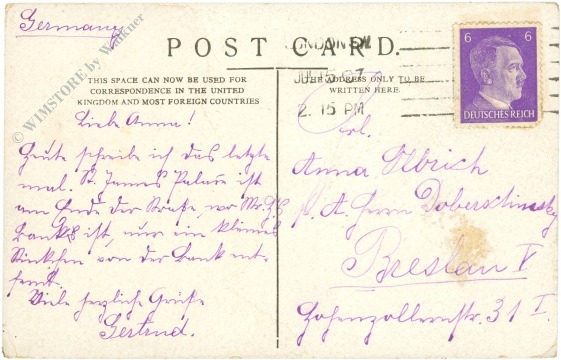 Germany
POST CARD.
LONDON S.W.
JUL 15 07
2. 15 PM
6 6
DEUTSCHES REICH
THIS SPACE CAN NOW BE USED FOR
CORRESPONDENCE IN THE UNITED
KINGDOM AND MOST FOREIGN COUNTRIES
THE ADDRESS ONLY TO BE
WRITTEN HERE.
© WIMSTORE by Walkner
Liebe Anna!
Heute schreibe ich das letzte
mal. St. James Palace ist
am Ende der Straße, wo Mr.
Bank ist, nur ein kleines
Stückchen von der Bank ent-
fernt.
Viele herzliche Grüße
Gertrud.
Frl.
Anna Olbrich
p. A. Herrn Doberschinsky
Breslau V
Hohenzollernstr. 31 I.